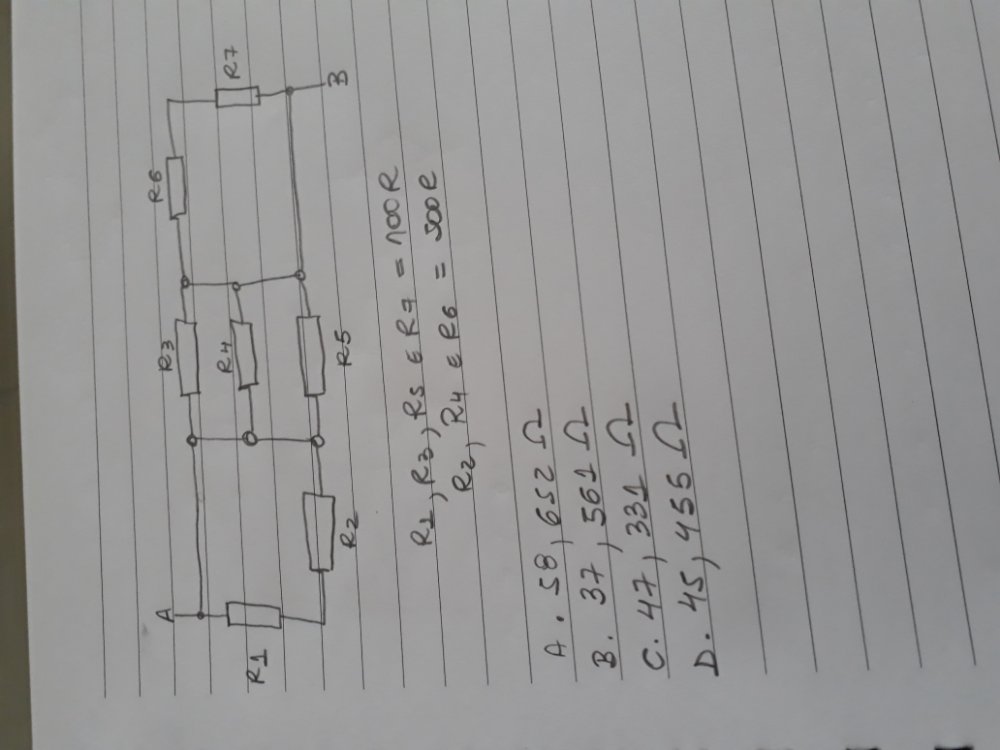 A
R1
R2
R3
R4
R5
R6
R7
B
R1, R3, R5 E R7 = 100R
R2, R4 E R6 = 500R
A. 58,652 Ω
B. 37,561 Ω
C. 47,331 Ω
D. 45,455 Ω